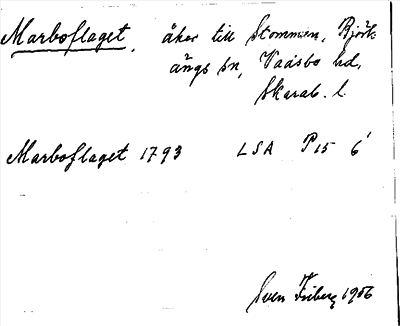 Marboflaget, åker till Stommen, Björk
ängs sn, Vadsbo hd,
Skarab. l.
Marboflaget 1793 LSA P15 6¹
Sven Friberg 1956